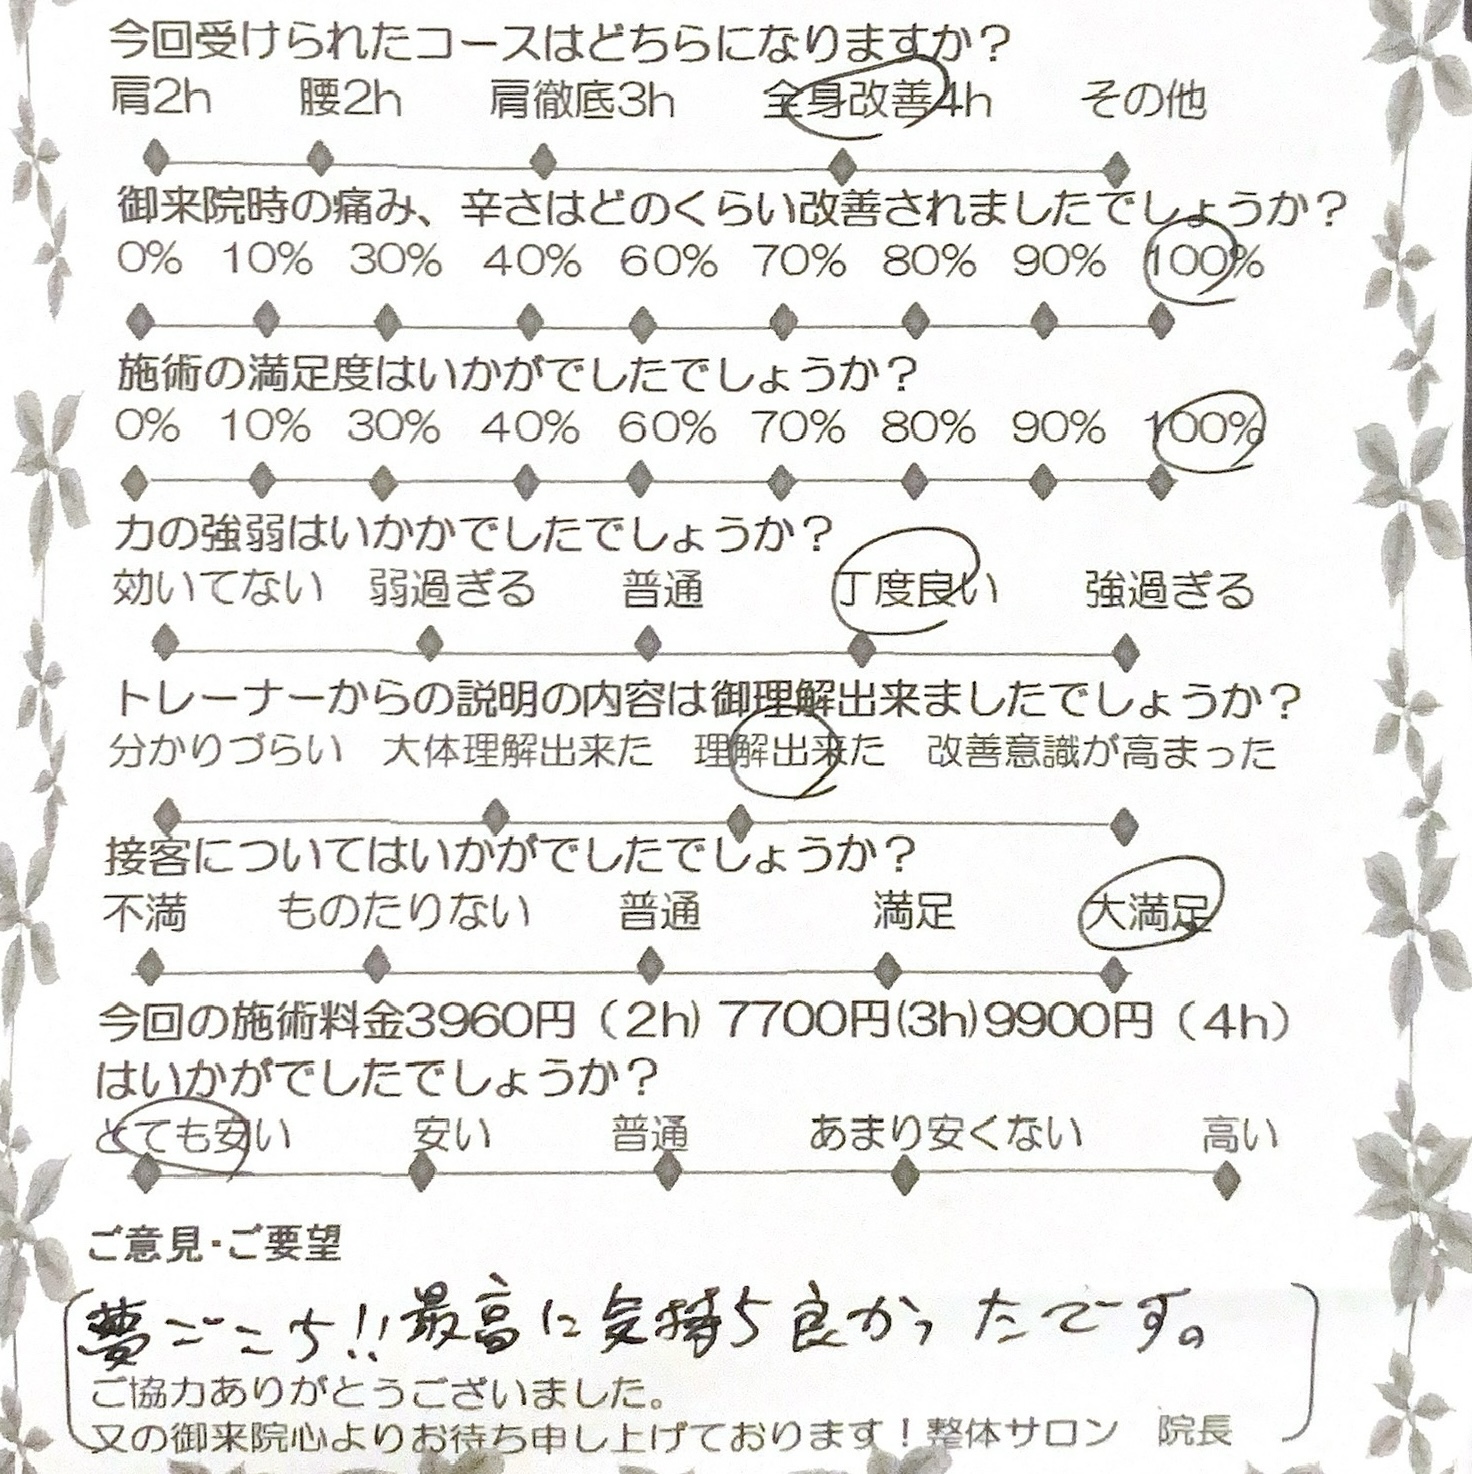 今回受けられたコースはどちらになりますか？
肩2h 腰2h 肩徹底3h 全身改善4h その他
御来院時の痛み、辛さはどのくらい改善されましたでしょうか？
0% 10% 30% 40% 60% 70% 80% 90% 100%
施術の満足度はいかがでしたでしょうか？
0% 10% 30% 40% 60% 70% 80% 90% 100%
力の強弱はいかかでしたでしょうか？
効いてない 弱過ぎる 普通 丁度良い 強過ぎる
トレーナーからの説明の内容は御理解出来ましたでしょうか？
分かりづらい 大体理解出来た 理解出来た 改善意識が高まった
接客についてはいかがでしたでしょうか？
不満 ものたりない 普通 満足 大満足
今回の施術料金3960円（2h) 7700円(3h)9900円（4h）
はいかがでしたでしょうか？
とても安い 安い 普通 あまり安くない 高い
ご意見・ご要望
夢ごこち!!最高に気持ち良かったです。
ご協力ありがとうございました。
又の御来院心よりお待ち申し上げております！整体サロン 院長